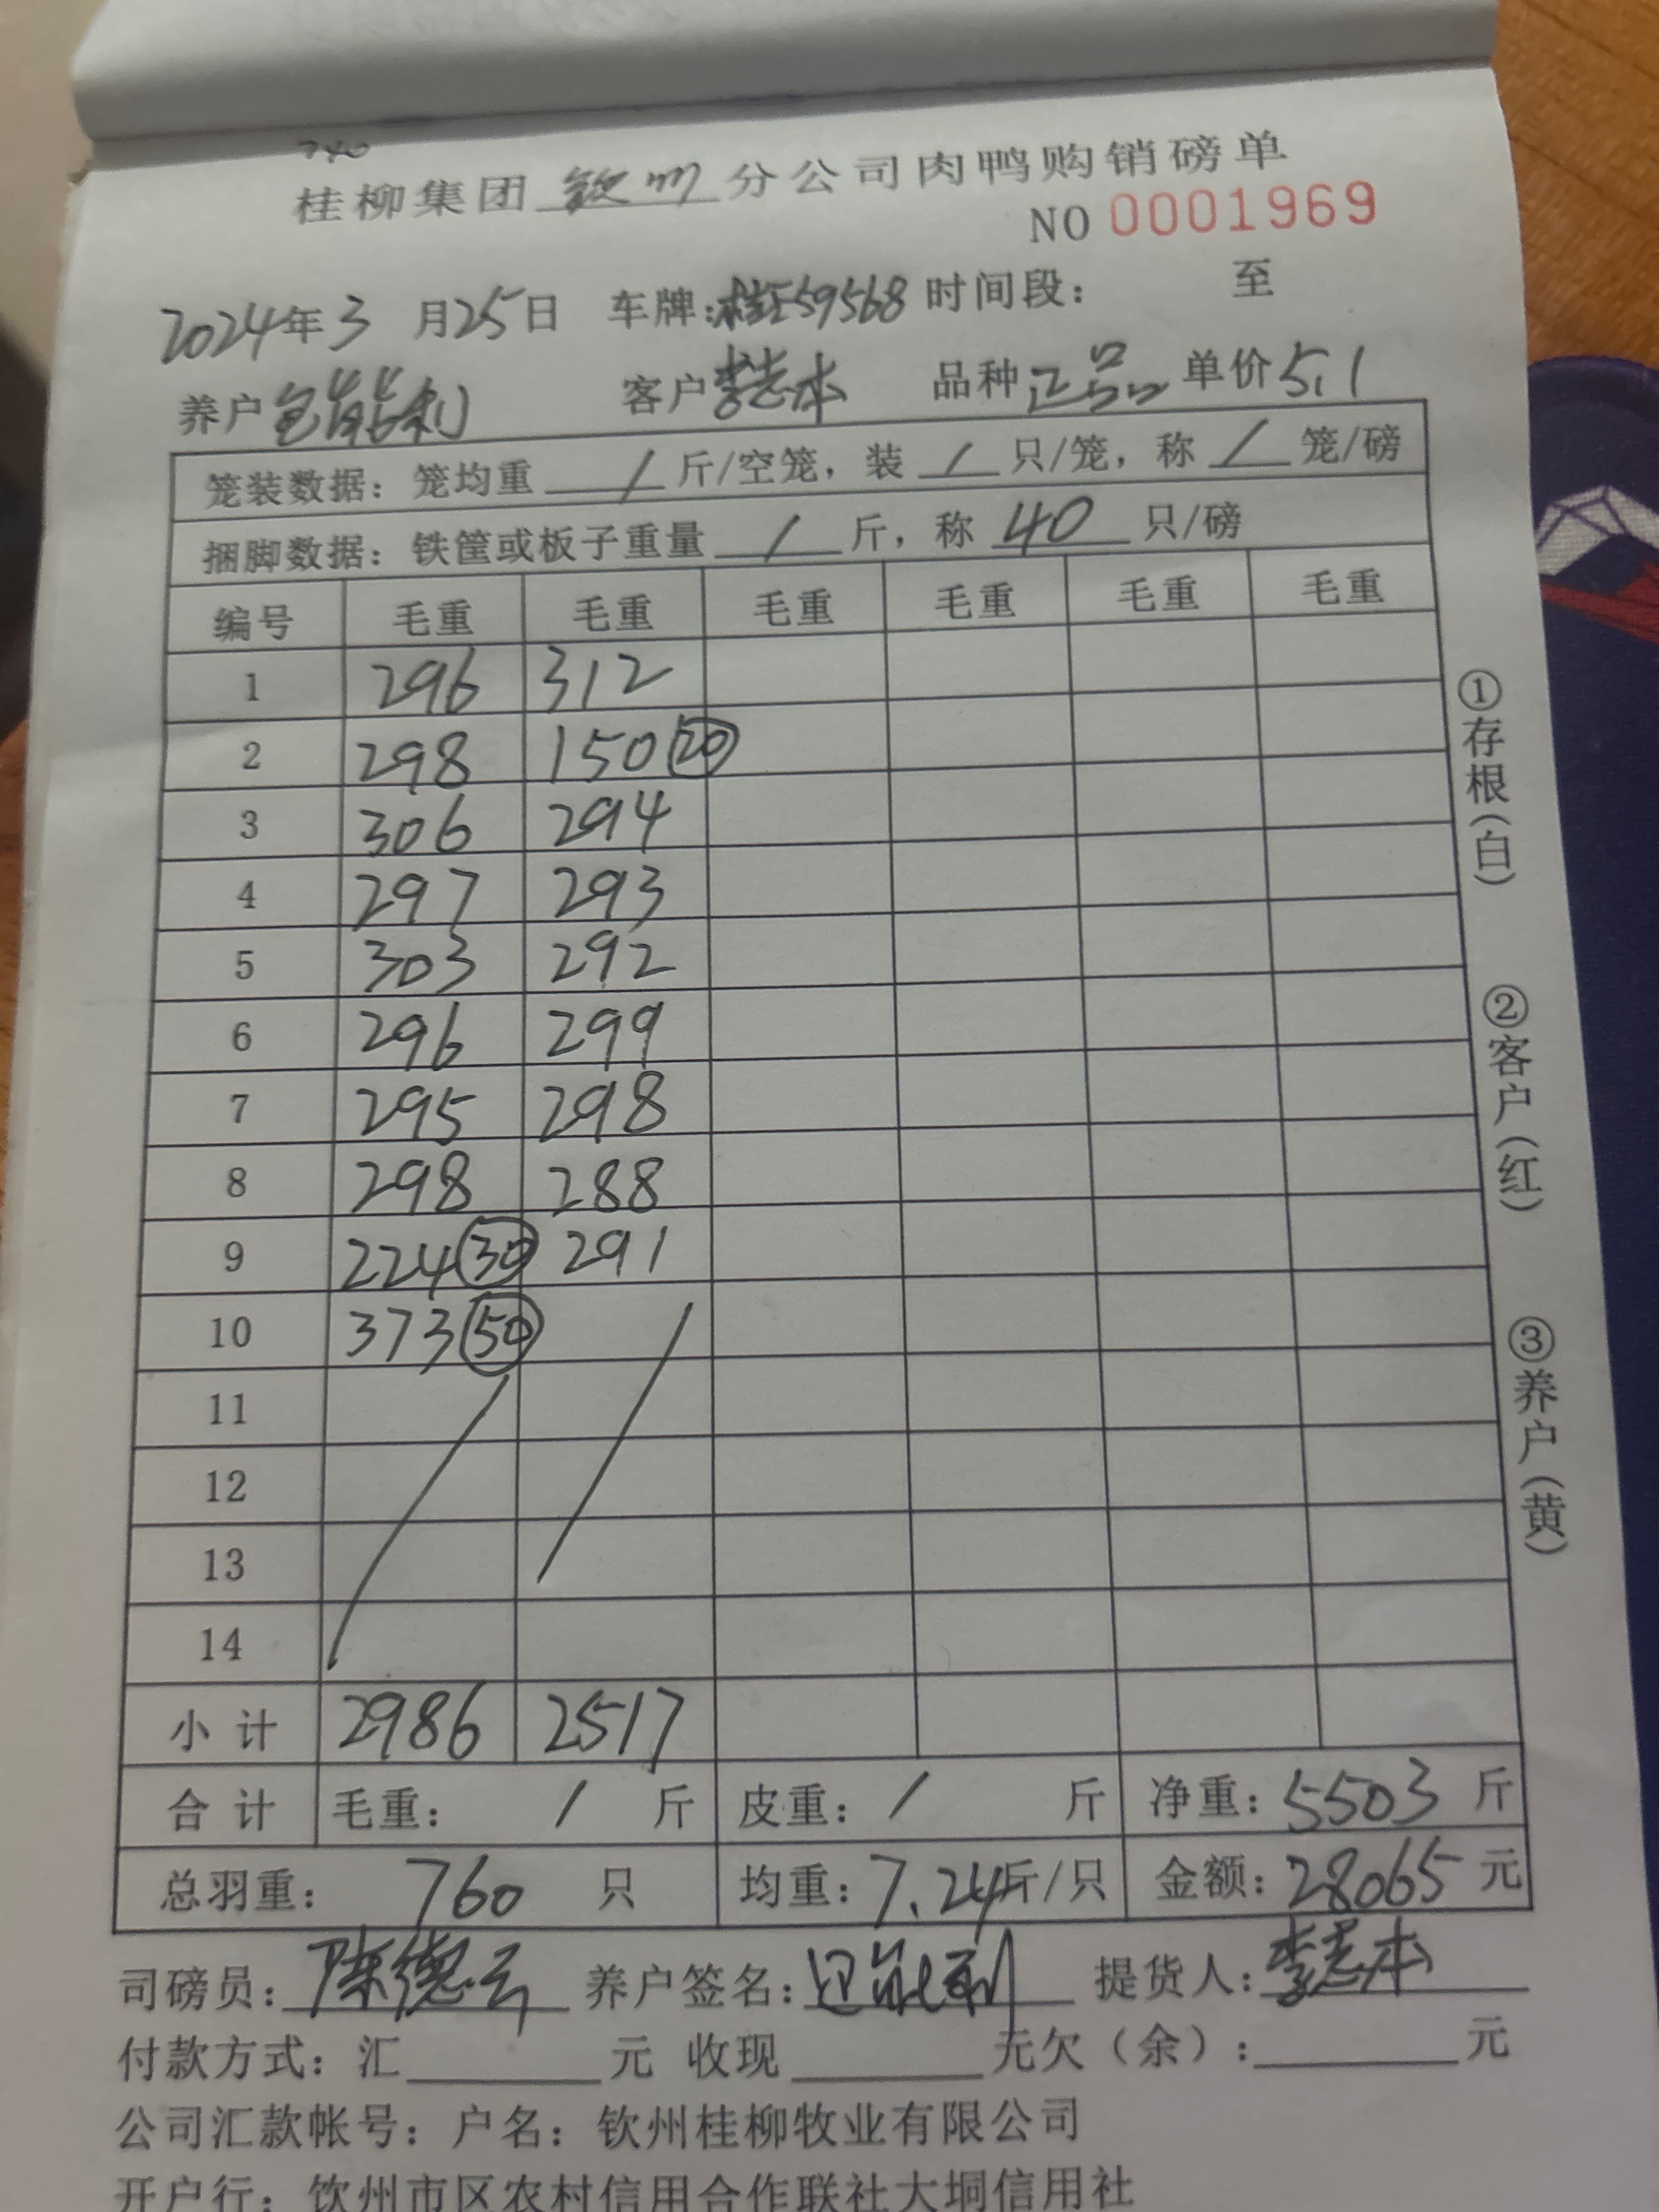 桂柳集团 钦州 分公司肉鸭购销磅单
NO 0001969
2024年3月25日 车牌:桂E59568 时间段: 至
养户 客户李志本 品种正品 单价5.1
笼装数据: 笼均重 / 斤/空笼, 装 / 只/笼, 称 / 笼/磅
捆脚数据: 铁筐或板子重量 / 斤, 称 40 只/磅
编号 毛重 毛重 毛重 毛重 毛重 毛重
1 296 312
2 298 150 20
3 306 294
4 297 293
5 303 292
6 296 299
7 295 298
8 298 288
9 224 30 291
10 373 50
11
12
13
14
小计 2986 2517
合计 毛重: / 斤 皮重: / 斤 净重: 5503 斤
总羽重: 760 只 均重: 7.24斤/只 金额: 28065 元
司磅员: 陈德云 养户签名: 提货人: 李志本
付款方式: 汇 元 收现 无欠(余): 元
公司汇款帐号: 户名: 钦州桂柳牧业有限公司
开户行: 钦州市区农村信用合作联社大垌信用社
①存根(白)
②客户(红)
③养户(黄)